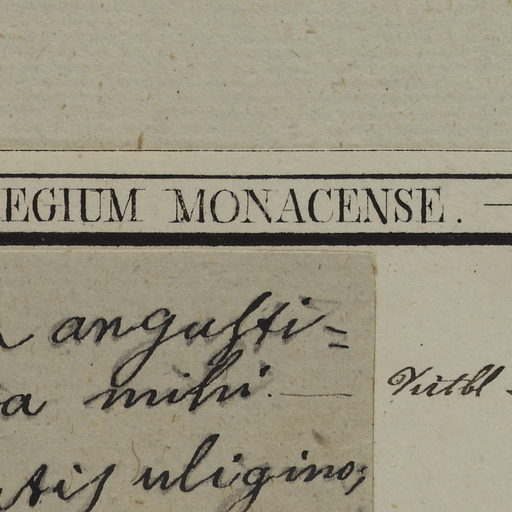 EGIUM MONACENSE. —
angusti=
a mihi. —
uligino;